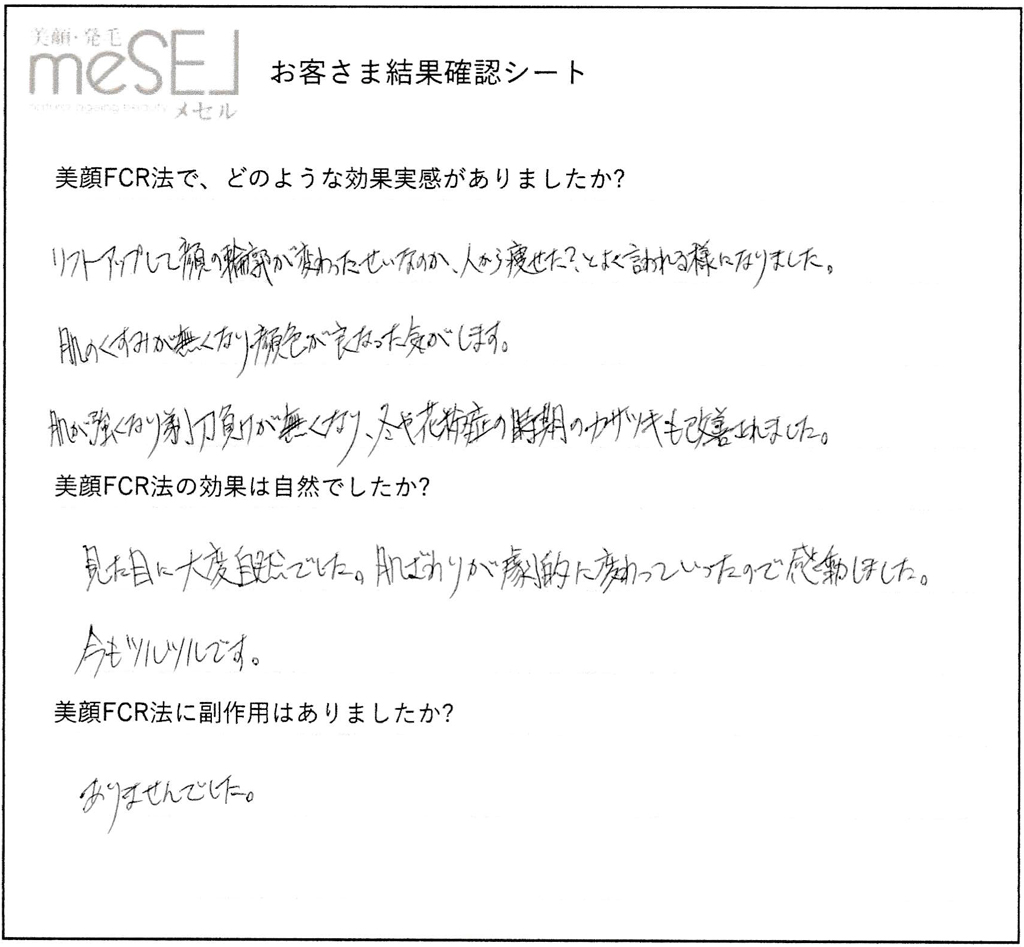 美顔・発毛
meSEL
natural ageing beauty
メセル
お客さま結果確認シート
美顔FCR法で、どのような効果実感がありましたか?
リフトアップして顔の輪郭が変わったせいなのか、人から痩せた?とよく言われる様になりました。
肌のくすみが無くなり顔色が良なった気がします。
肌が強くなり剃刀負けが無くなり、冬や花粉症の時期のカサツキも改善されました。
美顔FCR法の効果は自然でしたか?
見た目に大変自然でした。肌ざわりが劇的に変わっていったので感動しました。
今もツルツルです。
美顔FCR法に副作用はありましたか?
ありませんでした。